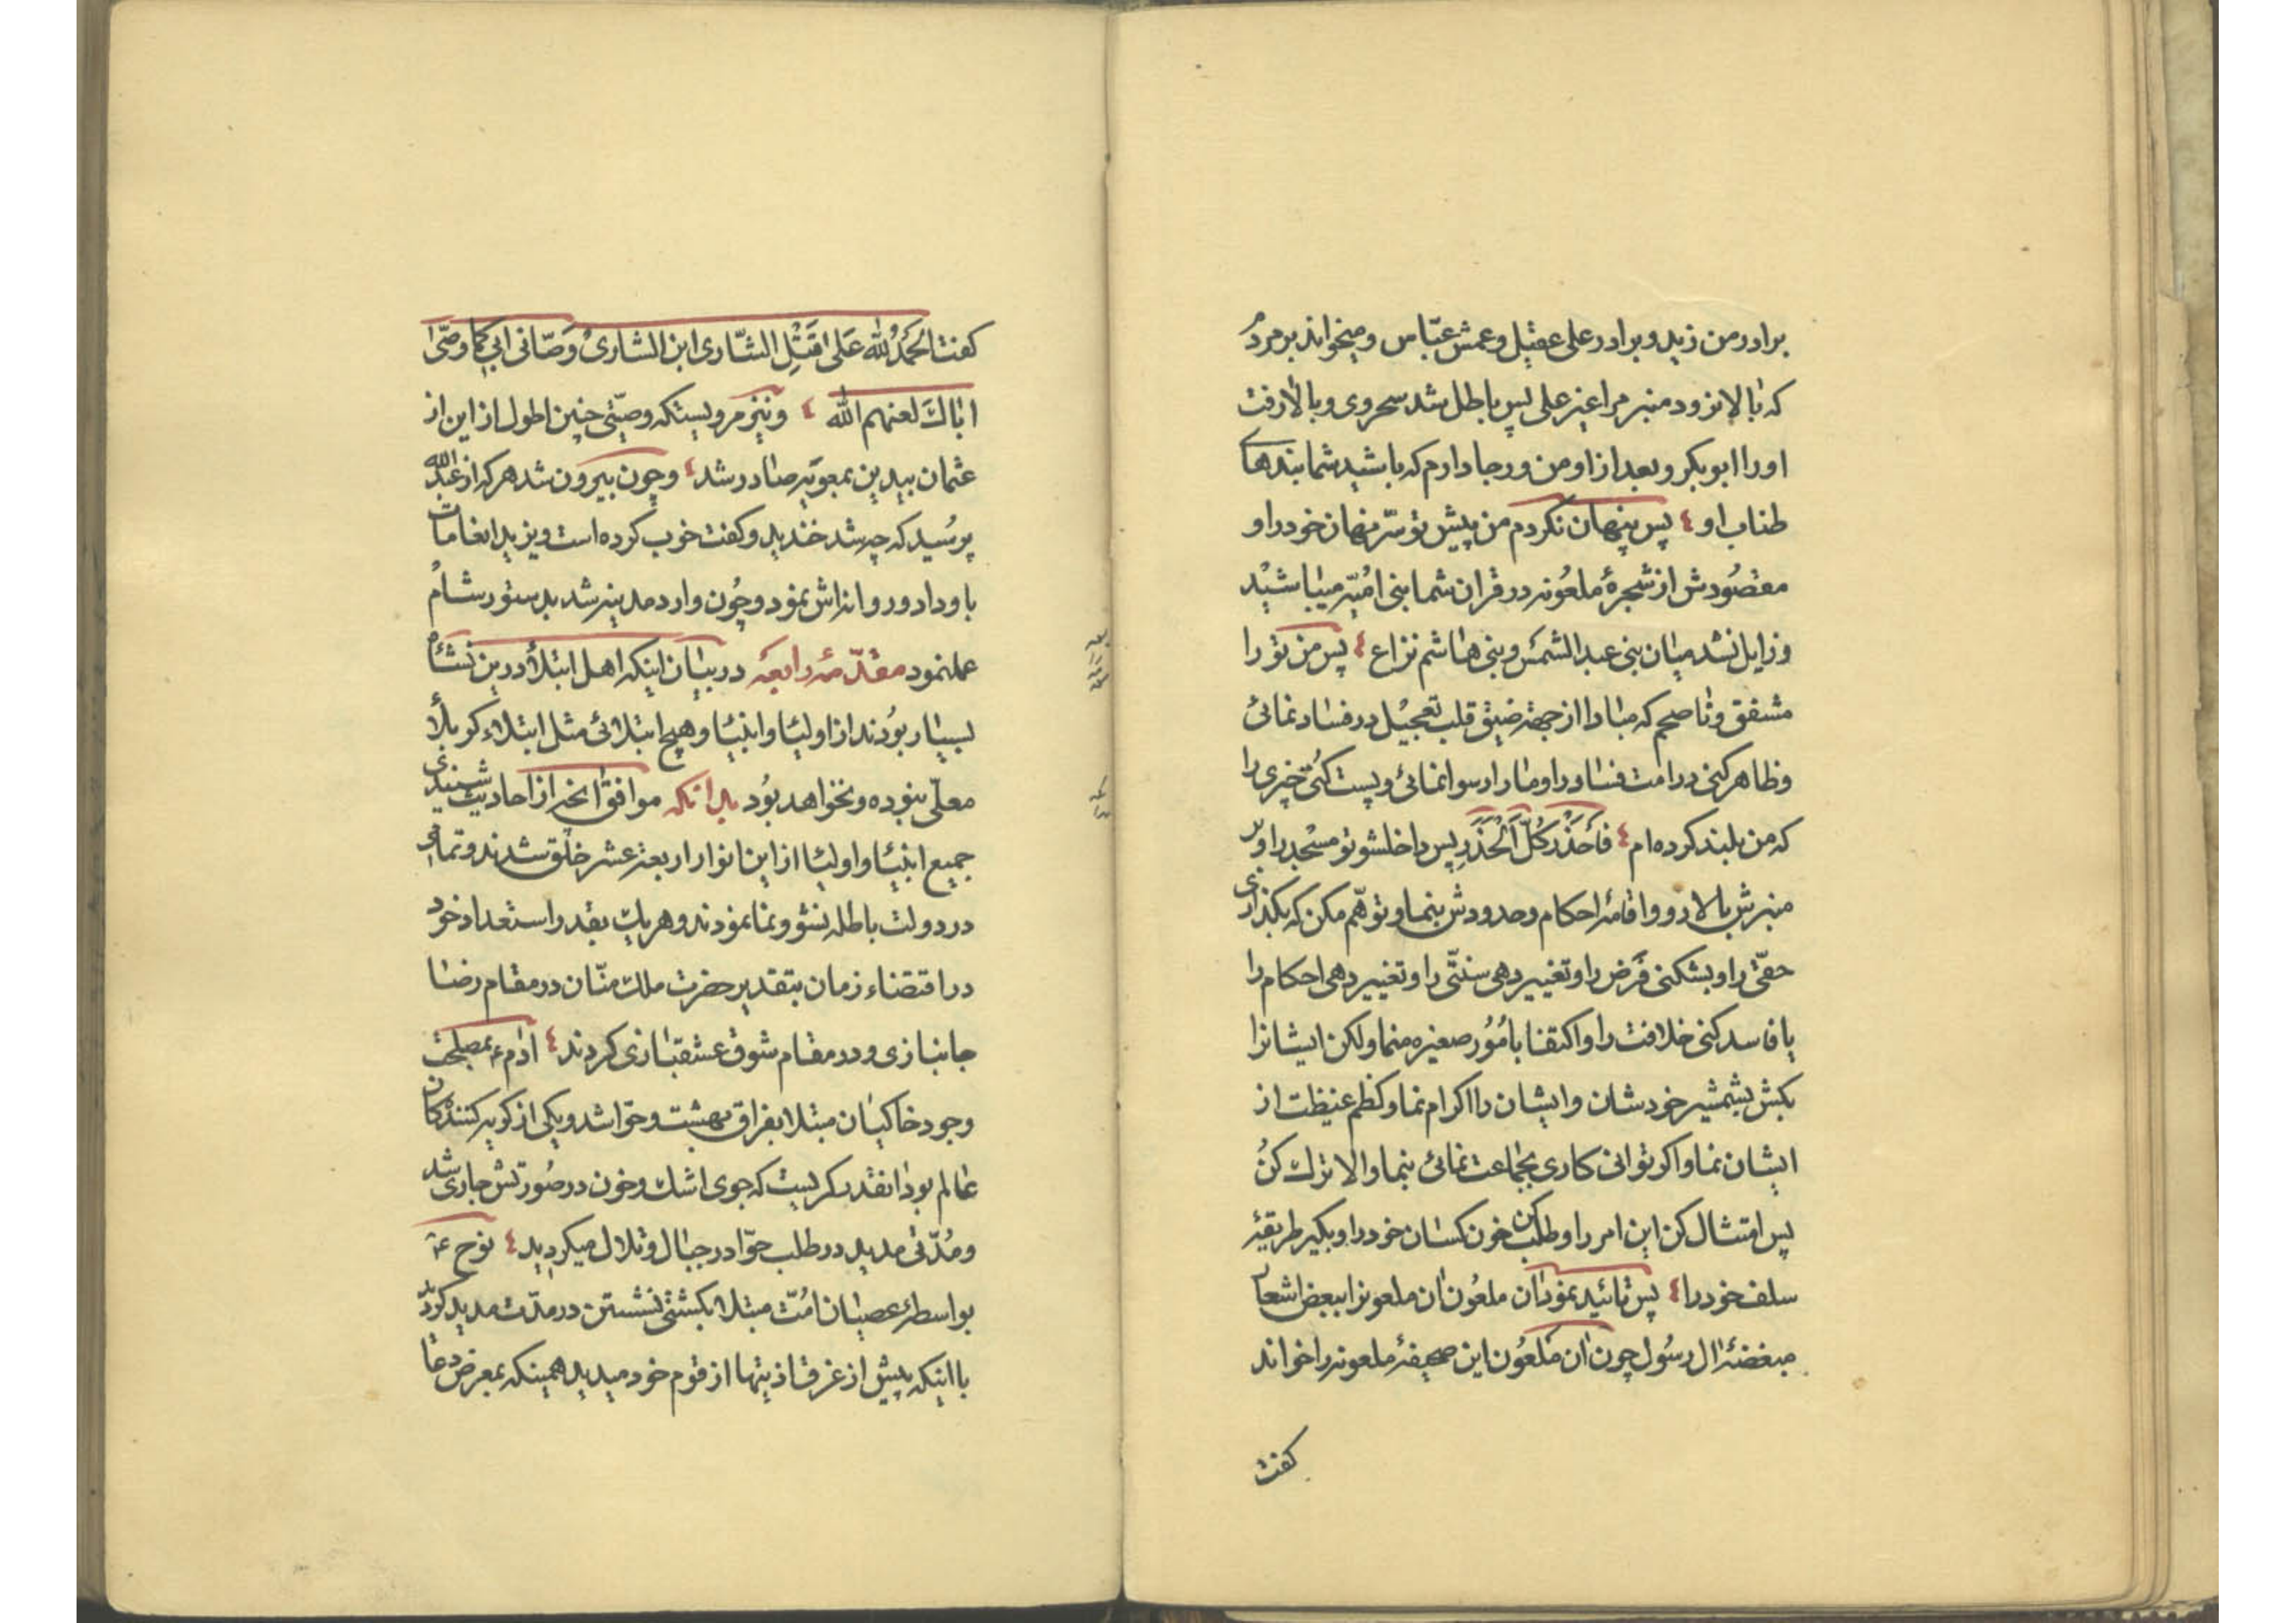 برادر من زید و برادر علی عقیل و عمش عبّاس و میخواند بر مردم
که بالا نرود منبر مرا غیر علی پس باطل شد سحر وی و بالا رفت
او را ابو بکر و بعد از او من و رجا دارم که باشید شما بندهای
طناب او پس پنهان نکردم من پیش تو سرّ پنهان خود را و
مقصُودش از شجرهٔ ملعُونه در قران شما بنی امُیّه میباشید
و زایل نشد میان بنی عبد الشمس و بنی هاشم نزاع پس من تو را
مشفق و ناصحم که مبادا از جهة ضیق قلب تعجیل در فساد نمائی
و ظاهر کنی در امت فساد را و ما را رسوا نمائی و پست کنی چیزی را
که من بلند کرده ام فَاحذَر کُلّ الحَذَرِ پس داخلشو تو مسجد را و بر
منبرش بالا رو و اقامهٔ احکام و حدودش بنما و توهّم مکن که بگذاری
حقّی را و بشکنی فرض را و تغییر دهی سنتّی را و تغییر دهی احکام را
یا فاسد کنی خلافت را و اکتفا بامُور صغیره منما ولکن ایشانرا
بکش بشمشیر خودشان و ایشان را اکرام نما و کظم غیظت از
ایشان نما و اکر توانی کاری بجماعت نمائی بنما و الا ترک کُن
پس امتثال کن این امر را و طلب کن خون کسان خود را و بکیر طریقهٔ
سلف خود را پس تائید نمود ان ملعُون ان ملعونرا ببعض اشعار
مبغضهٔ ال رسُول چون ان ملعُون این صحیفهٔ ملعونه را خواند
کفت
کفت الحَمدُ لله عَلی قَتلِ الشّاری ابن الشاری وَصّانی ابی کما وصّی
اباک لعنهم الله و نیز مرویستکه وصیّتی چنین اطول از این از
عثمان بیدین بمعویه صادر شد و چون بیرون شد هر که از عبد الله
پرسُید که چه شد خندید و کفت خوب کرده است و یزید انعامات
باو داد و روانه اش نمود و چُون وارد مدینه شد بدستور شام
عملنمود مقدّمهٔ رابعه در بیان اینکه اهل ابتلا در ین نشأهٔ
بسیار بُودند از اولیا و انبیا و هیچ ابتلائی مثل ابتلاء کربلا
معلّی نبوده و نخواهد بُود بدانکه موافق انچه از احادیث شنیدی
جمیع انبیا و اولیا از این انوار اربعة عشر خلق شدند و تمامی
در دولت باطله نشو و نما نمودند و هریک بقدر استعداد خود
در اقتضاء زمان بتقدیر حضرت ملک منّان در مقام رضا
جانبازی و در مقام شوق عشقبازی کردند ادم ع بمصلحت
وجود خاکیان مبتلا بفراق بهشت و حوّا شد و یکی از کریه کنندکان
عالم بود انقدر کریست که جوی اشک و خون در صُورتش جاری شد
و مُدّتی مدید در طلب حوّا در جبال و تلال میکردید نوح ع
بواسطهٔ عصیان امُت مبتلا بکشتی نشستن در مدّت مدید کردید
با اینکه پیش از غرق اذیتها از قوم خود میدید همینکه بمعرض دعا